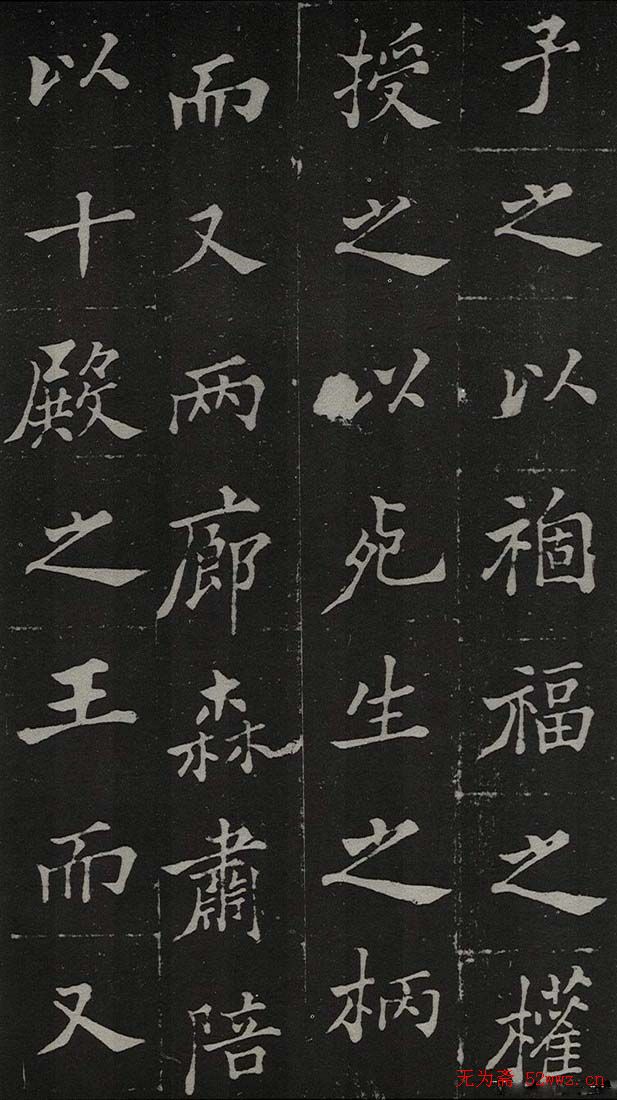 子之以禍福之權
授之以死生之柄
而又两廊森肅陪
以十殿之王而又
无为斋 52wwz.cn